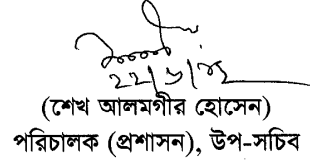 (শেখ আলমগীর হোসেন)
পরিচালক (প্রশাসন), উপ-সচিব